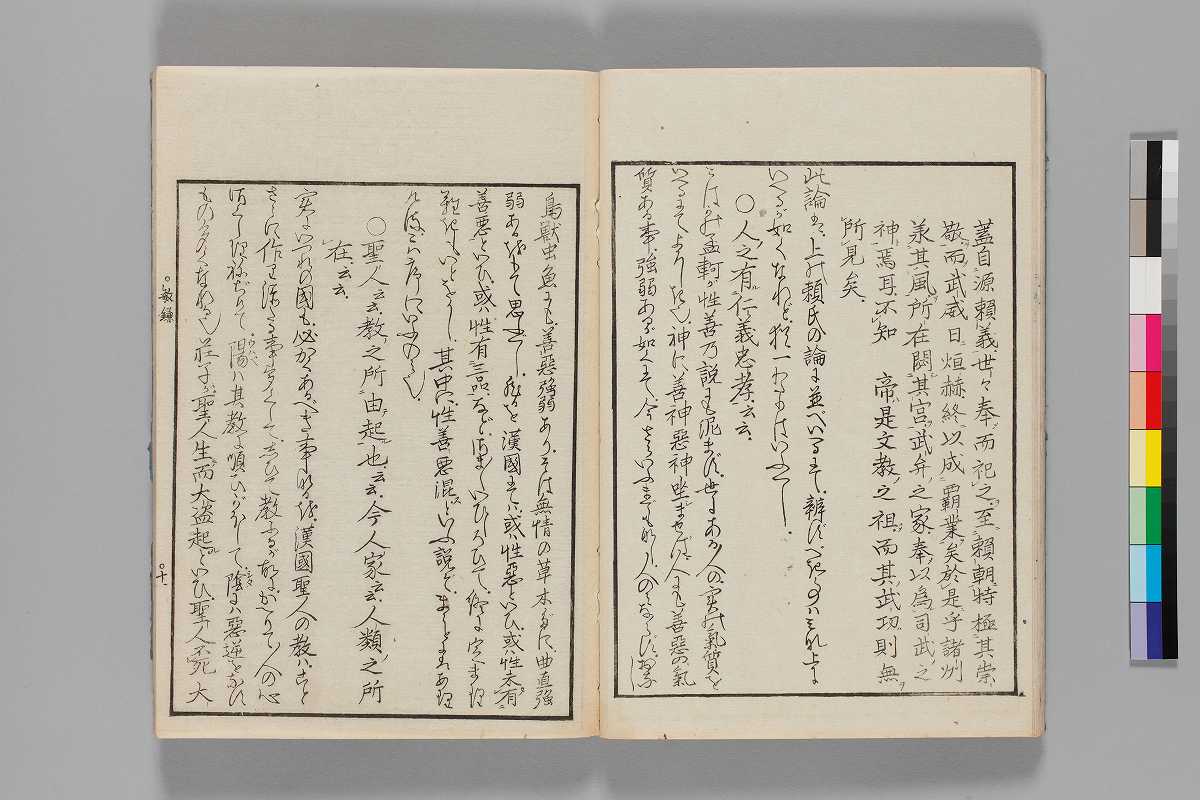 蓋自源賴義世々奉而祀之至賴朝特極其崇
敬而武威日烜赫終以成霸業矣於是乎諸州
羕其風所在閟其宮武弁之家奉以爲司武之
神焉耳不知 帝是文教之祖而其武功則無
所見矣
此論も上の賴氏の論に並べいへるにて辨ずべきハみな上に
いへるが如くなれど猶一わたりはいふべし
○人之有仁義忠孝云云
こはかの孟軻が性善乃説にも泥まず世にある人の実の氣質を
いへるにて神に善神惡神坐ませば人にも善惡の氣
質ある事強弱あるが如くにて今さらいふまでもなし人の
鳥獸虫魚にも善惡強弱ありそは無情の草木だに曲直強
弱あるをもて思ふべし然るを漢國にてハ或ハ性惡といひ或ハ性本有
善惡といひ或ハ性有三品などさまといひしろひて終に定まり
難きもいとをかし其中に性善惡混といふ説ぞまことにあり
ければこゝにいふのみ也
○聖人云云教之所由起也云云今人家云云人類之所
在云云
実にいづれの國も必かくあるべき事なるを漢國聖人の教ハこと
さらに作り添たる事多くしてしひて教るが故にかへりて人の心
陽ハ其教に順ひがほして陰にハ惡逆をなす
もの多くなれる也莊子に聖人生而大盜起といひ聖人不死大